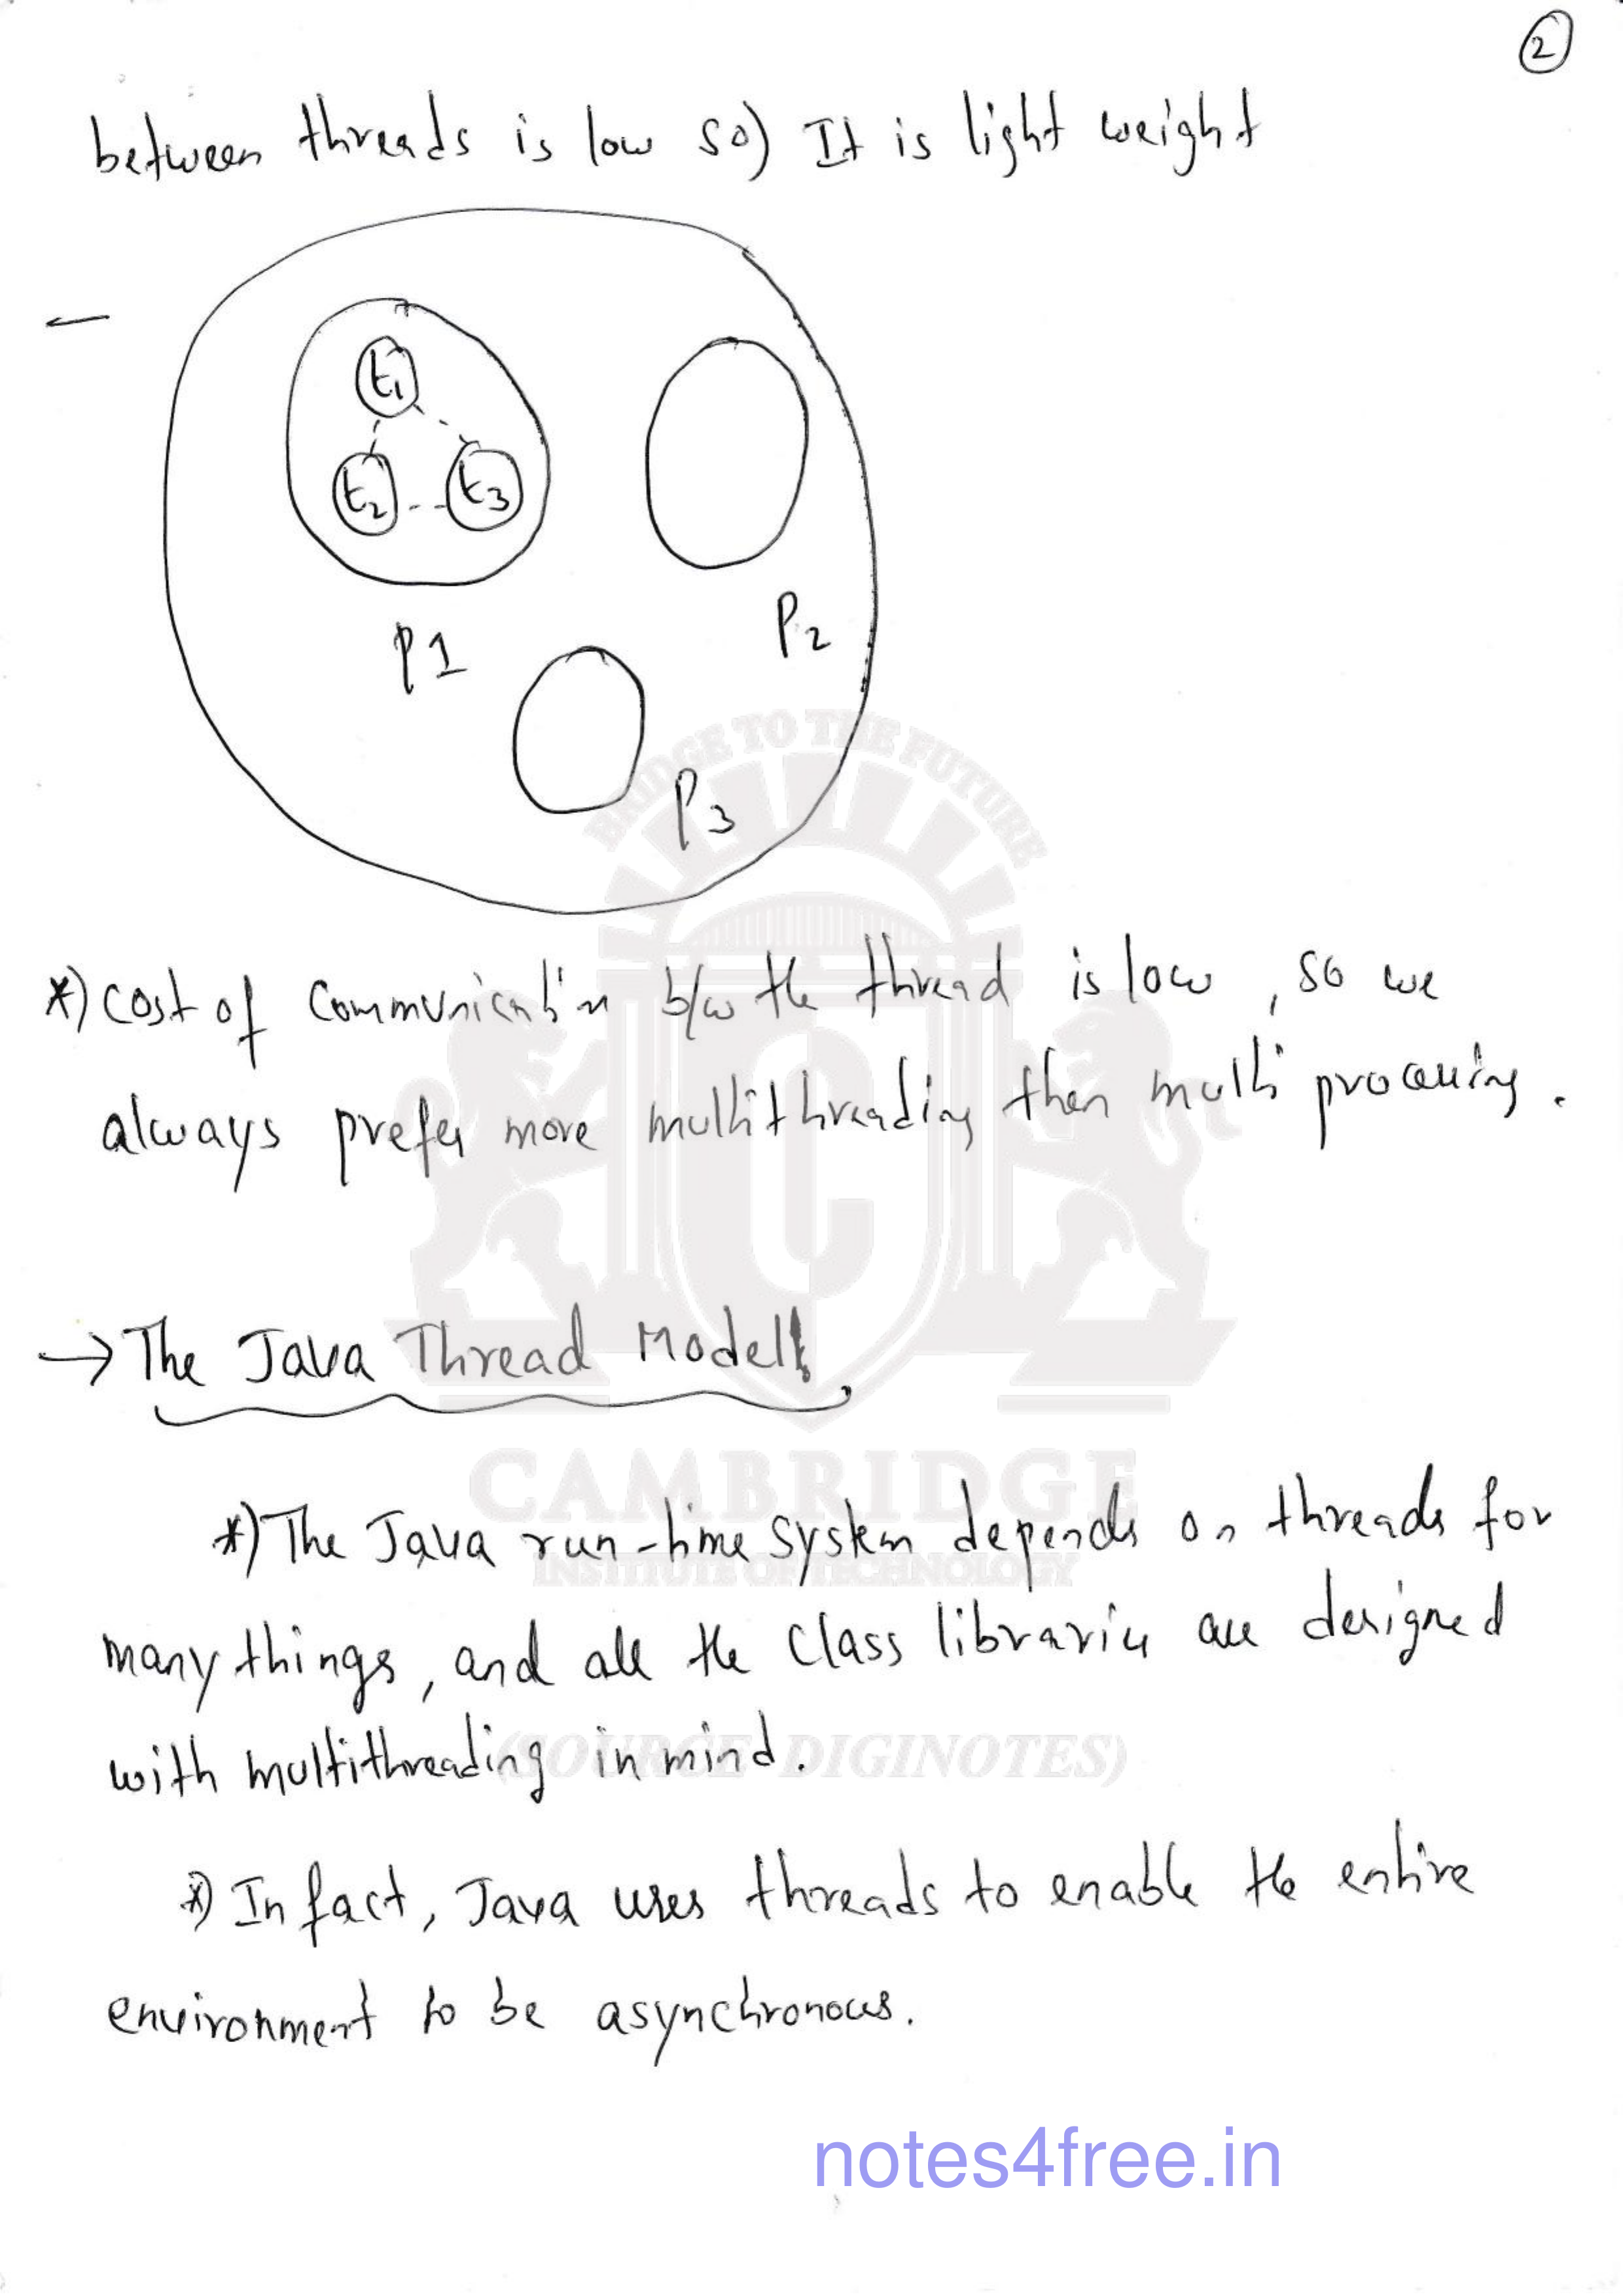 2
between threads is low so) It is light weight
t1
t2 t3
P1
P2
P3
BRIDGE TO THE FUTURE
*) cost of communicati'n b/w the thread is low, so we
always prefer more multithreading then multi processing.
→ The Java Thread Model:
CAMBRIDGE
*) The Java run-time system depends on threads for
INSTITUTE OF TECHNOLOGY
many things, and all the class libraries are designed
with multithreading in mind.
(SOURCE DIGINOTES)
*) In fact, Java uses threads to enable the entire
environment to be asynchronous.
notes4free.in